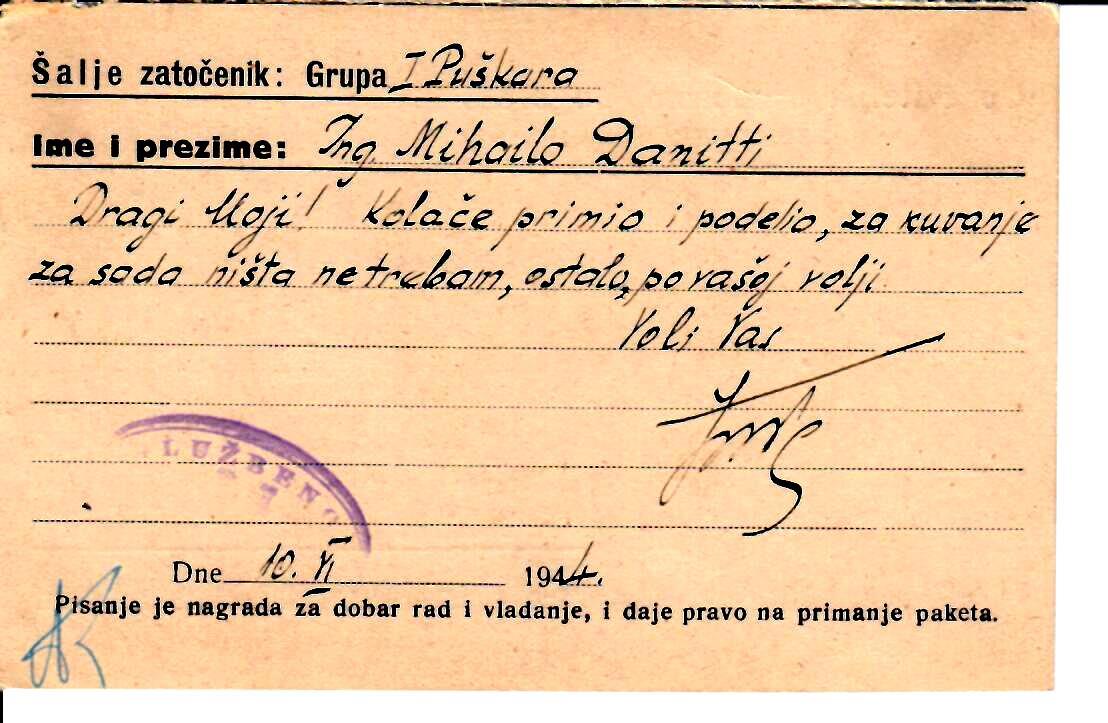 Šalje zatočenik: Grupa I Puškara
Ime i prezime: Ing. Mihailo Danitti
Dragi Moji! Kolače primio i podelio, za kuvanje
za sada ništa netrebam, ostalo, po vašoj volji
Voli Vas
LUŽBENO
Dne 10. VI 1944.
Pisanje je nagrada za dobar rad i vladanje, i daje pravo na primanje paketa.